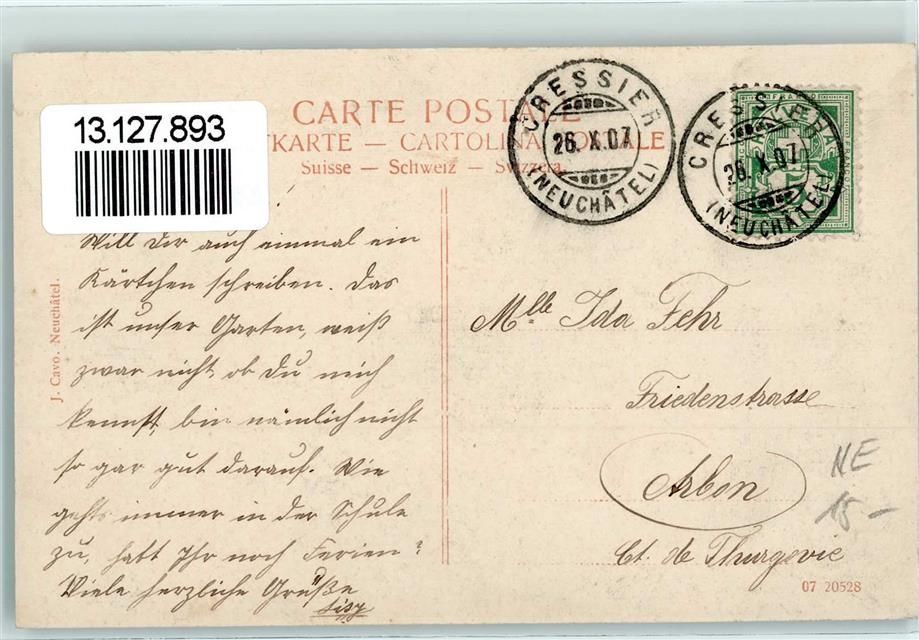 13.127.893
CARTE POSTALE
TKARTE — CARTOLINA POSTALE
Suisse — Schweiz — Svizzera
CRESSIER
26.X.07
(NEUCHÂTEL)
CRESSIER
26.X.07
(NEUCHÂTEL)
FRANCO
J. Cavo. Neuchâtel.
Will Dir auch einmal ein
Kärtchen schreiben. Das
ist unser Garten, weiß
zwar nicht, ob Du mich
kennst, bin nämlich nicht
so gar gut darauf. Wie
gehts immer in der Schule
zu, habt Ihr noch Ferien?
Viele herzliche Grüße
Lisy
Mlle Ida Fehr
Friedenstrasse
Arbon
Ct. de Thurgovie
NE
15.-
07 20528